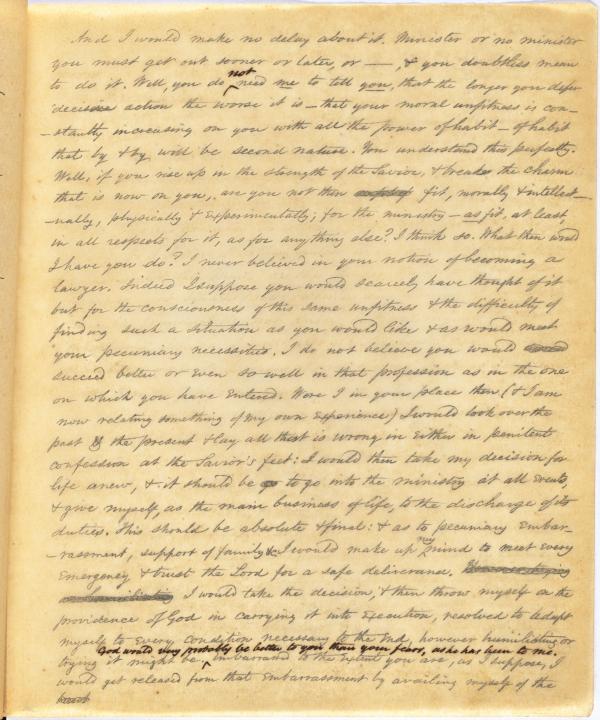 And I would make no delay about it. Minister or no minister
you must get out sooner or later, or —, & you doubtless mean
to do it. Well, you do not need me to tell you, that the longer you defer
decisive action the worse it is – that your moral unfitness is con-
-stantly increasing on you with all the power of habit – of habit
that by & by will be second nature. You understand this perfectly.
Well, if you rise up in the strength of the Savior, & break the charm
that is now on you, are you not then fit, morally & intellect-
-ually, physically & experimentally, for the ministry – as fit, at least
in all respects for it, as for any thing else? I think so. What then would
I have you do? I never believed in your notion of becoming a
lawyer. Indeed I suppose you would scarcely have thought of it
but for the consciousness of this same unfitness & the difficulty of
finding such a situation as you would like & as would meet
your pecuniary necessities. I do not believe you would
succeed better or even so well in that profession as in the one
on which you have entered. Were I in your place then (& I am
now relating something of my own experience) I would look over the
past & the present & lay all that is wrong in either in penitent
confession at the Savior's feet: I would then take my decision for
life anew, & it should be to go into the ministry at all events,
& give myself, as the main business of life, to the discharge of its
duties. This should be absolute & final: & as to pecuniary embar-
-rassment, support of family &c I would make up my mind to meet every
emergency & trust the Lord for a safe deliverance.
I would take the decision, & then throw myself on the
providence of God in carrying it into execution, resolved to adapt
myself to every condition necessary to the end, however humiliating or
God would very probably be better to you than your fears, as he has been to me.
trying it might be. Embarrassed to the extent you are, as I suppose, I
would get released from that embarrassment by availing myself of the